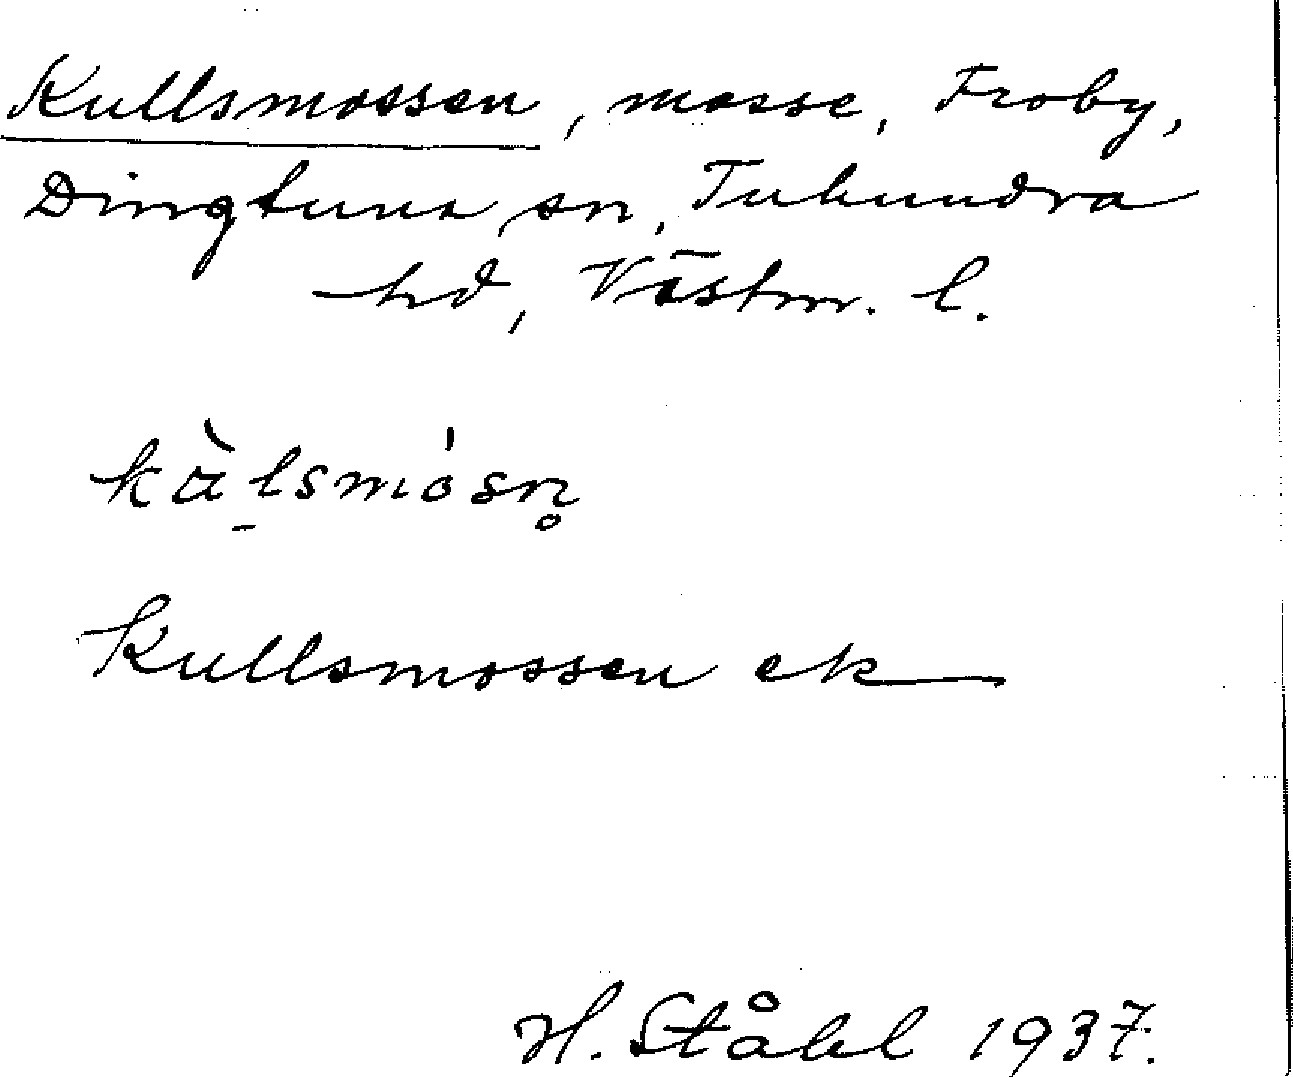 Kullsmossen, mosse, Froby,
Dingtuna sn, Tuhundra
hd, Västm. l.
kàḻsmósn̥
Kullsmossen ek
H. Ståhl 1937.